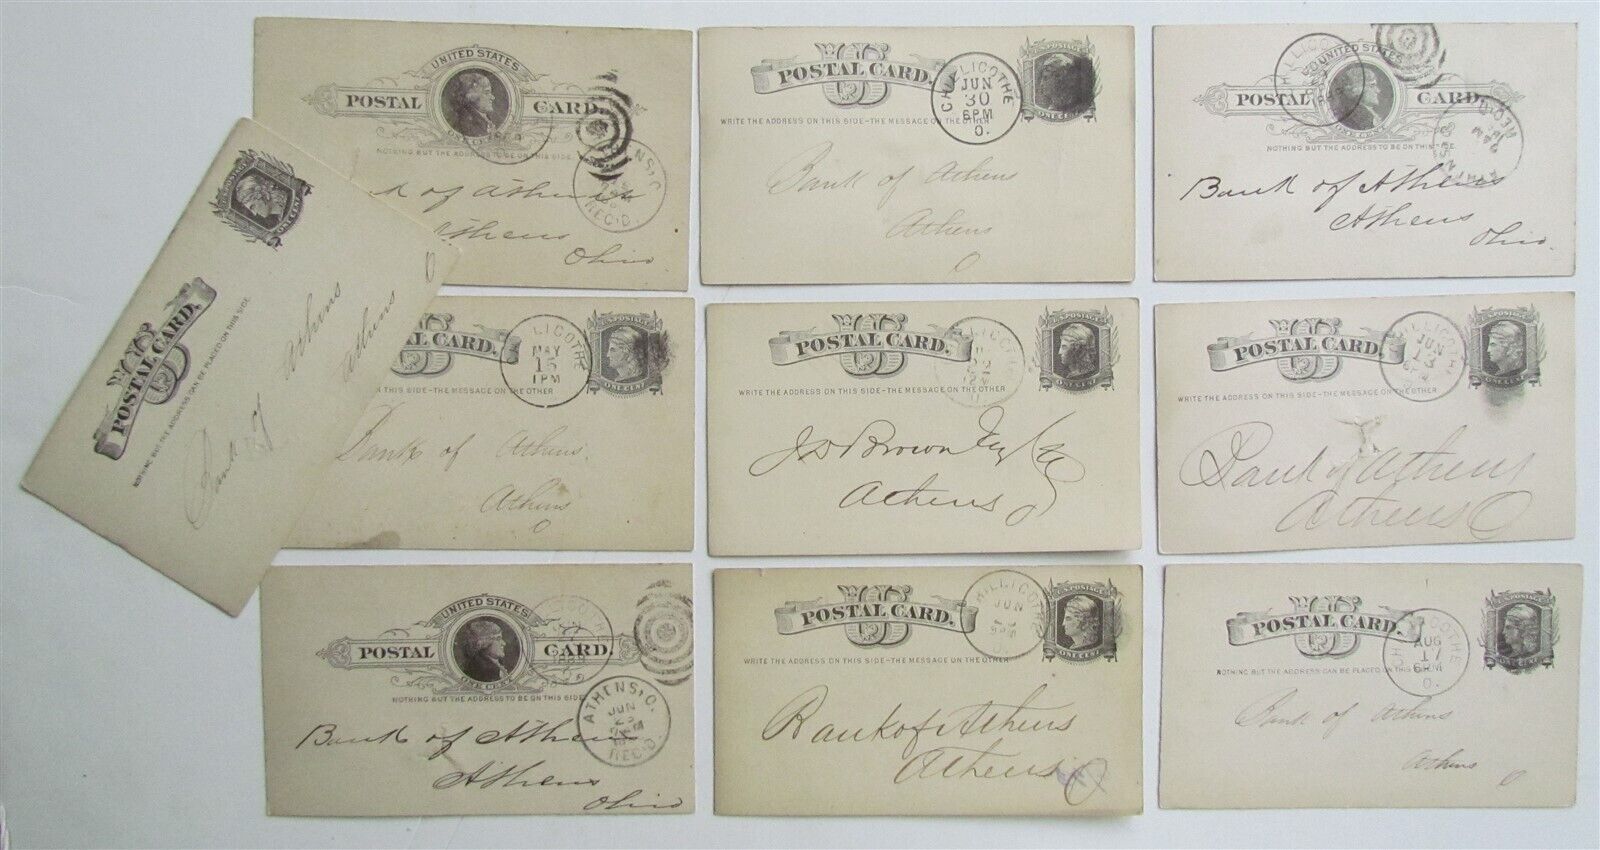 UNITED STATES
POSTAL CARD.
ONE CENT
NOTHING BUT THE ADDRESS TO BE ON THIS SIDE.
REC'D.
k of Athens
Athens
Ohio
U.S. POSTAGE
POSTAL CARD.
ONE CENT
WRITE THE ADDRESS ON THIS SIDE-THE MESSAGE ON THE
CHILLICOTHE
JUN
30
6PM
O.
Bank of Athens
Athens
O
UNITED STATES
POSTAL CARD.
ONE CENT
NOTHING BUT THE ADDRESS TO BE ON THIS SIDE.
CHILLICO
REC'D.
Bank of Athens
Athens
Ohio.
ONE CENT
POSTAL CARD.
NOTHING BUT THE ADDRESS CAN BE PLACED ON THIS SIDE.
Bank of
Athens
Athens
O
U.S. POSTAGE
TAL CARD.
ONE CENT
ON THIS SIDE-THE MESSAGE ON THE OTHER
LLICOTHE
MAY
15
1PM
Bank of Athens.
Athens
O
U.S. POSTAGE
POSTAL CARD.
ONE CENT
WRITE THE ADDRESS ON THIS SIDE-THE MESSAGE ON THE OTHER
LLICOTHE
Athens
O
U.S. POSTAGE
POSTAL CARD.
ONE CENT
WRITE THE ADDRESS ON THIS SIDE-THE MESSAGE ON THE OTHER
HILLICOTHE
JUN
13
Bank of Athens
Athens O
UNITED STATES
POSTAL CARD.
ONE CENT
NOTHING BUT THE ADDRESS TO BE ON THIS SIDE.
ATHENS, O.
JUN
REC'D.
Bank of Athens
Athens
Ohio
U.S. POSTAGE
POSTAL CARD.
ONE CENT
WRITE THE ADDRESS ON THIS SIDE-THE MESSAGE ON THE OTHER
CHILLICOTHE
JUN
5PM
O.
Bank of Athens
Athens O
U.S. POSTAGE
POSTAL CARD.
ONE CENT
NOTHING BUT THE ADDRESS CAN BE PLACED ON THIS SIDE
AUG
17
6PM
O.
Bank of Athens
Athens
O